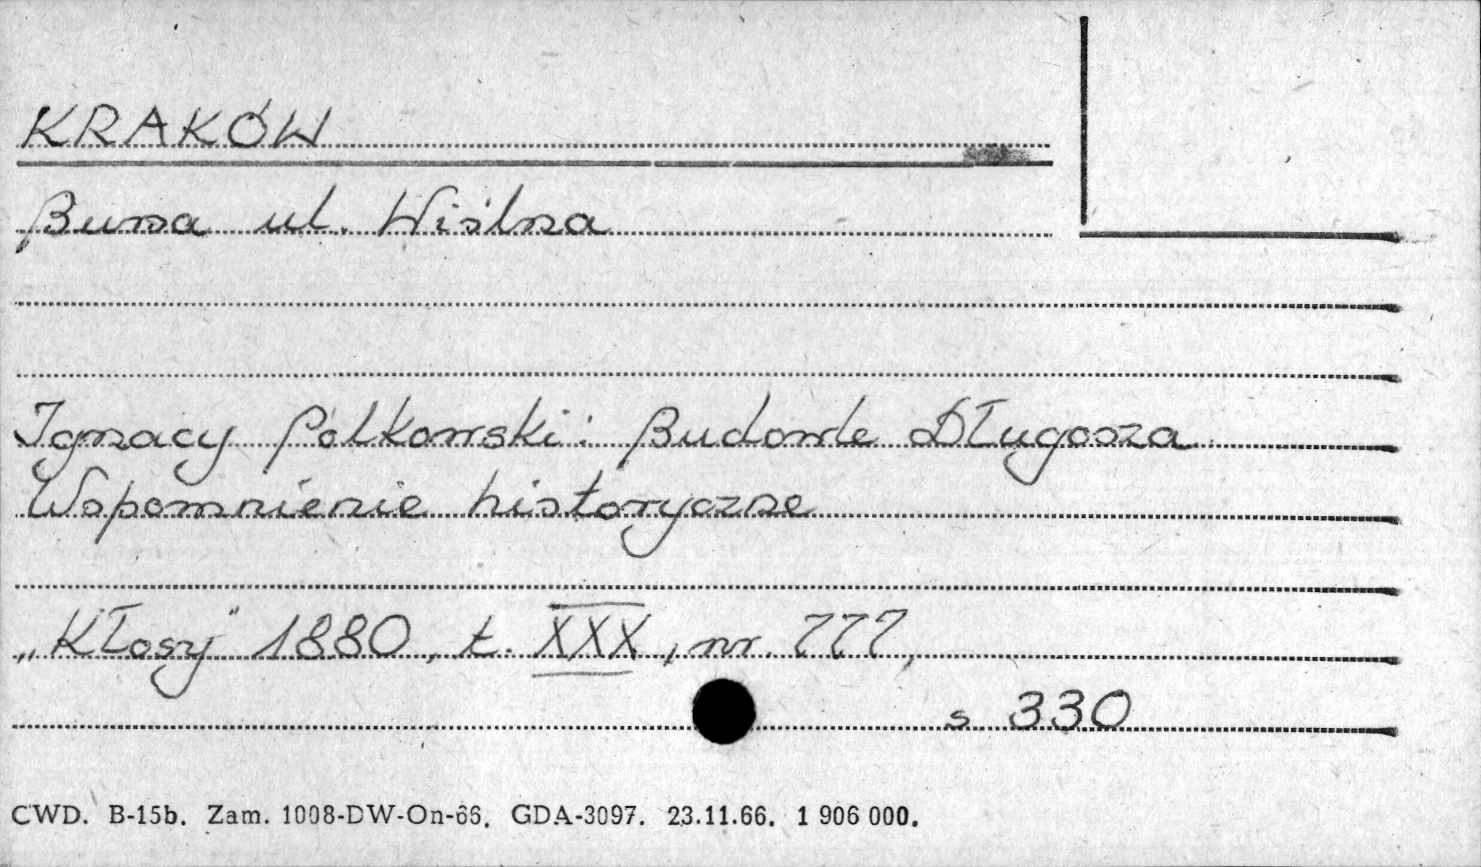 KRAKÓW
Bursa ul. Wiślna
Ignacy Polkowski: Budowle Długosza
Wspomnienie historyczne
„Kłosy" 1880, t. XXX, nr. 777,
s 330
CWD. B-15b. Zam. 1008-DW-On-66. GDA-3097. 23.11.66. 1 906 000.